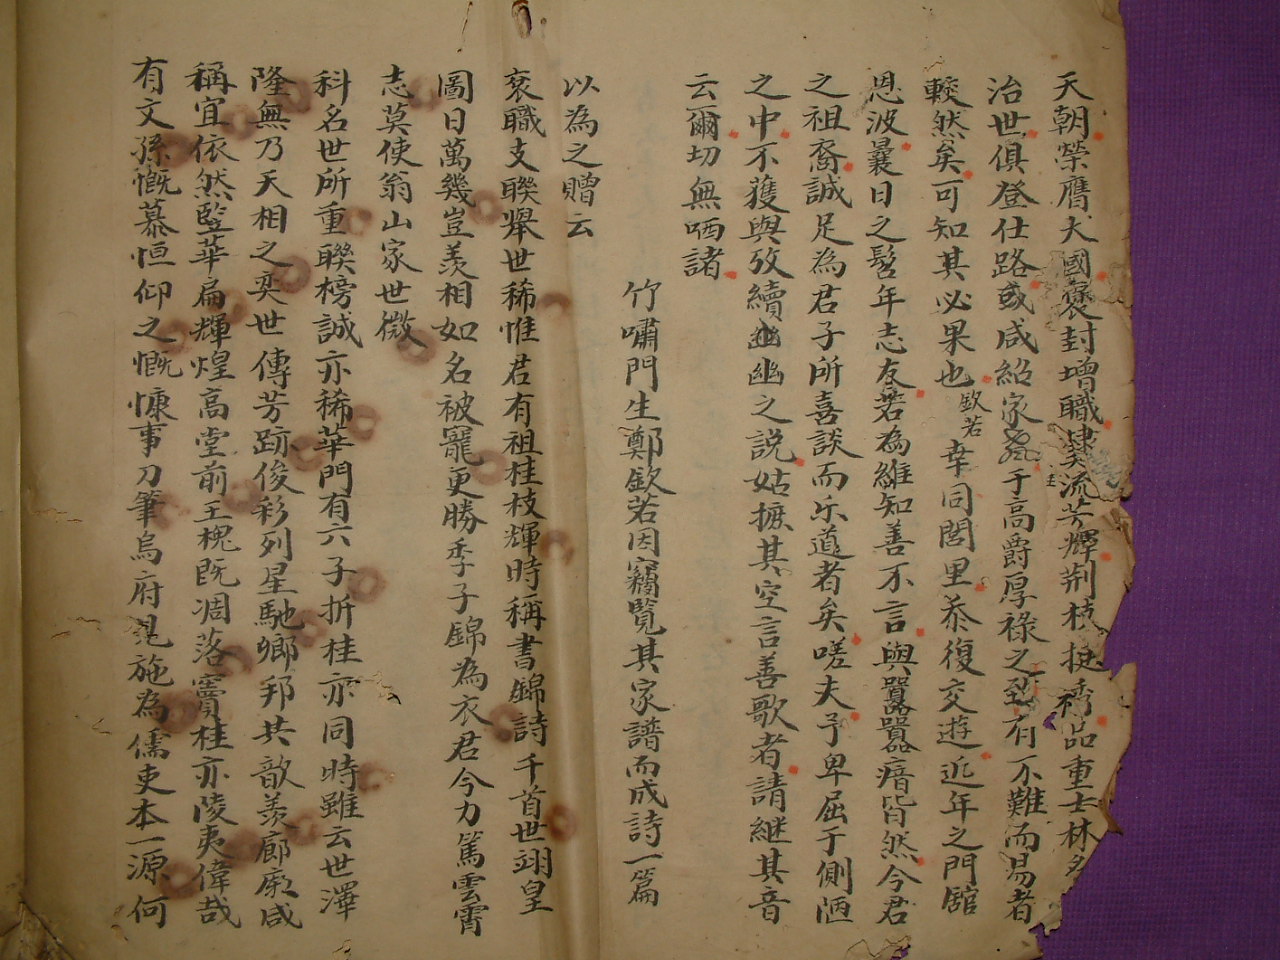 天朝榮膺大國褒封增職隸流芳輝荊枝挺秀品重士林名
治世俱登仕路或咸紹家于高爵厚祿之致有不難而易者
較然矣可知其必果也欽若幸同閭里忝復交遊近年之門館
恩波曩日之髫年志友若為維知善不言與囂囂瘖皆然今君
之祖裔誠足為君子所喜談而樂道者矣嗟夫予卑屈于側陋
之中不獲與攷續幽之說姑摭其空言善歌者請繼其音
云爾切無哂諸
竹嘯門生鄭欽若因竊覽其家譜而成詩一篇
以為之贈云
袞職支聯舉世稀惟君有祖桂枝輝時稱書錦詩千首世翊皇
圖日萬幾豈羨相如名被寵更勝季子錦為衣君今力篤雲霄
志莫使翁山家世微
科名世所重聯榜誠亦稀華門有六子折桂亦同時雖云世澤
隆無乃天相之奕世傳芳跡俊彩列星馳鄉邦共歆羨廊廟咸
稱宜依然豎華扁輝煌高堂前王槐既凋落竇桂亦陵夷偉哉
有文孫慨慕恒仰之慨慷事刀筆烏府見施為儒吏本一源何